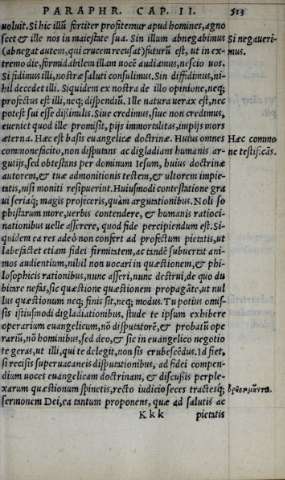 PARAPHR. CAP. II. 513
uoluit. Si hic illū fortiter profitemur apud homines, agno
scet & ille nos in maiestate sua. Sin illum abnegabimus Si negaueri-
(abnegat autem, qui crucem recusat) futurū est, ut in ex- mus.
tremo die, formidabilem illam uocē audiamus, nescio uos.
Si fidimus illi, nostræ saluti consulimus. Sin diffidimus, ni-
hil decedet illi. Siquidem ex nostra de illo opinione, neq;
profectus est illi, neq; dispendiū. Ille natura uerax est, nec
potest sui esse dissimilis. Siue credimus, siue non credimus,
eueniet quod ille promisit, pijs immortalitas, impijs mors
æterna. Hæc est basis euangelicæ doctrinæ. Huius omnes Hæc commo
commonefacito, non disputans ac digladians humanis ar- ne testis: cās.
gutijs, sed obtestans per dominum Iesum, huius doctrinæ
autorem, & tuæ admonitionis testem, & ultorem impie-
tatis, nisi moniti resipuerint. Huiusmodi contestatione gra
ui seriaq; magis proficeris, quàm argutationibus. Noli so
phistarum more, uerbis contendere, & humanis ratioci-
nationibus uelle asserere, quod fide percipiendum est. Si-
quidem ea res adeò non confert ad profectum pietatis, ut
labefactet etiam fidei firmitatem, ac tandē subuertat ani-
mos audientium, nihil non uocari in quæstionem, & phi-
losophicis rationibus, nunc asseri, nunc destrui, de quo du
bitare nefas, sic quæstione quæstionem propagāte, ut nul
lus quæstionum neq; finis sit, neq; modus. Tu potius omis-
sis istiusmodi digladiationibus, stude te ipsum exhibere
operarium euangelicum, nō disputatorē, & probatū ope
rariū, nō hominibus, sed deo, & sic in euangelico negotio
te geras, ut illi, qui te delegit, non sis erubescēdus. Id fiet,
si recisis superuacaneis disputationibus, ad fidei compen-
dium uoces euangelicam doctrinam, & discussis perple-
xarum quæstionum spinetis, recto iudicio seces tractesq;
sermonem Dei, ea tantum proponens, quæ ad salutis ac
K k k pietatis